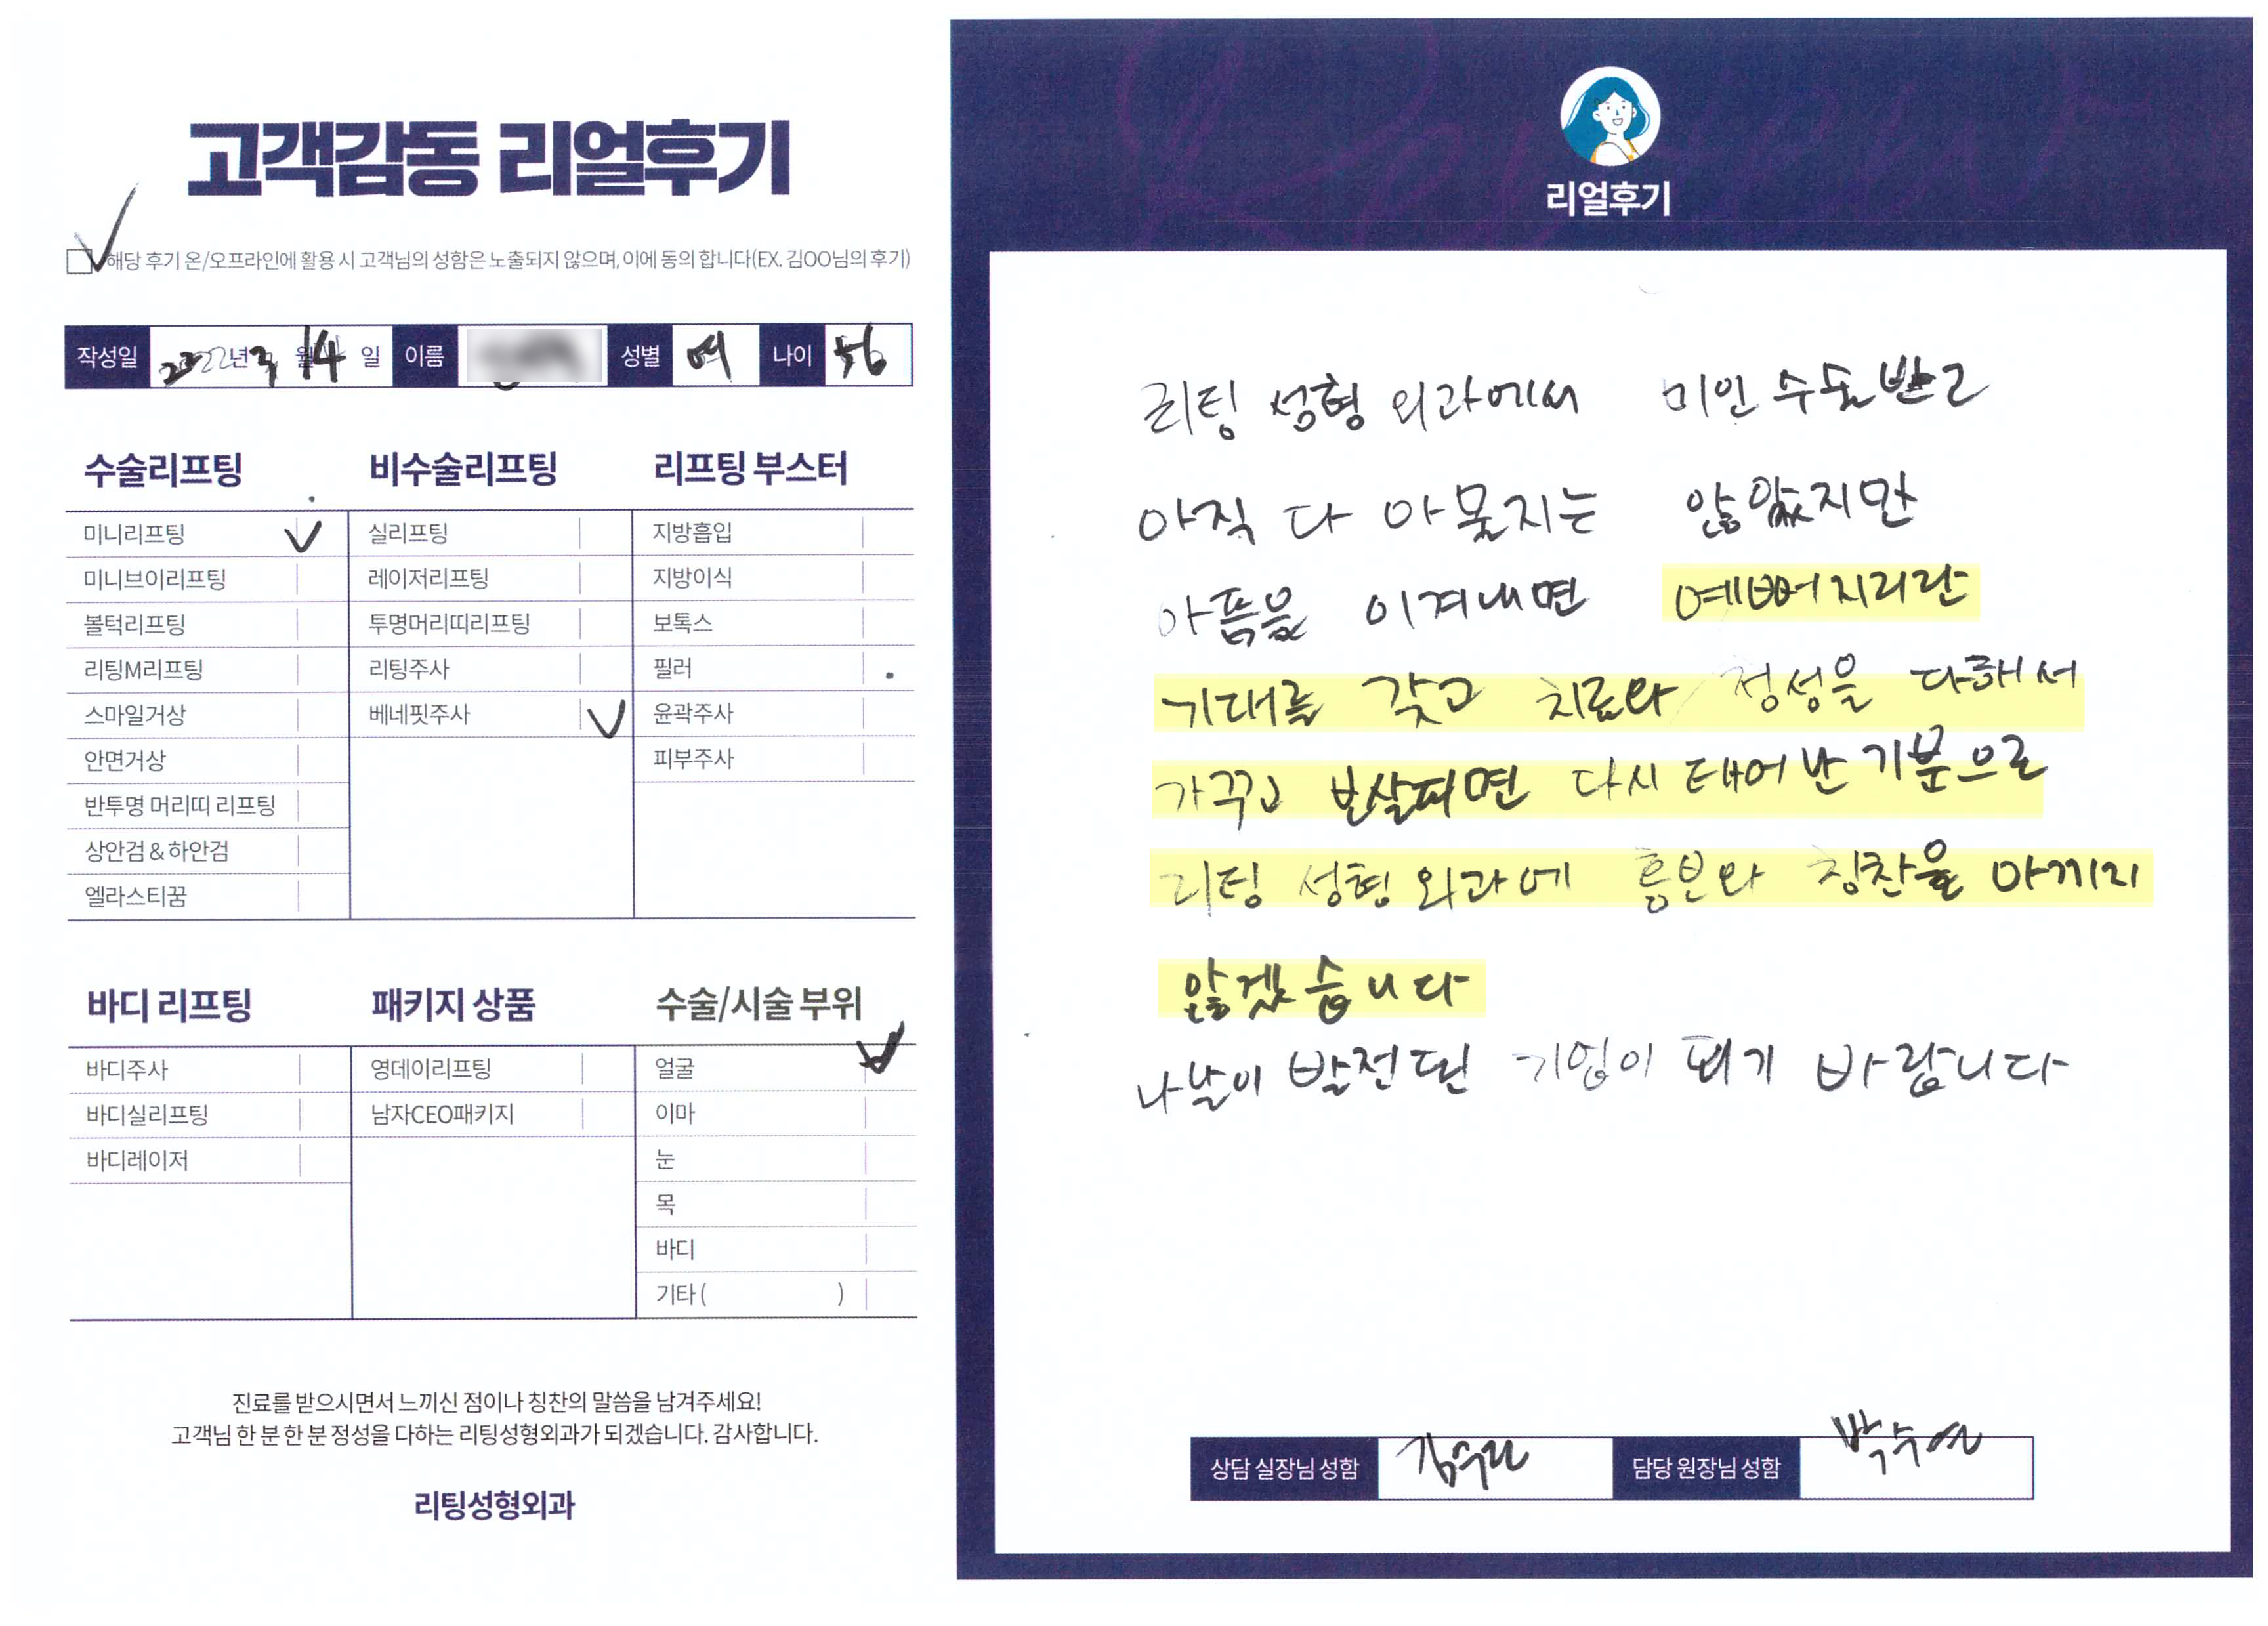 고객감동 리얼후기
해당 후기 온/오프라인에 활용 시 고객님의 성함은 노출되지 않으며, 이에 동의 합니다(EX. 김OO님의 후기)
작성일 2022년 3월 14일 이름 성별 여 나이 56
수술리프팅
미니리프팅
미니브이리프팅
볼턱리프팅
리팅M리프팅
스마일거상
안면거상
반투명 머리띠 리프팅
상안검&하안검
엘라스티꿈
비수술리프팅
실리프팅
레이저리프팅
투명머리띠리프팅
리팅주사
베네핏주사
리프팅 부스터
지방흡입
지방이식
보톡스
필러
윤곽주사
피부주사
바디 리프팅
바디주사
바디실리프팅
바디레이저
패키지 상품
영데이리프팅
남자CEO패키지
수술/시술 부위
얼굴
이마
눈
목
바디
기타( )
진료를 받으시면서 느끼신 점이나 칭찬의 말씀을 남겨주세요!
고객님 한 분 한 분 정성을 다하는 리팅성형외과가 되겠습니다. 감사합니다.
리팅성형외과
리얼후기
리팅 성형 외과에서 미인 수술 받고
아직 다 아물지는 않았지만
아픔을 이겨내면 예뻐지리란
기대를 갖고 치료와 정성을 다해서
가꾸고 보살피면 다시 태어난 기분으로
리팅 성형 외과에 흥분와 칭찬을 아끼지
않겠습니다
나날이 발전된 기업이 되기 바랍니다
상담 실장님 성함 담당 원장님 성함